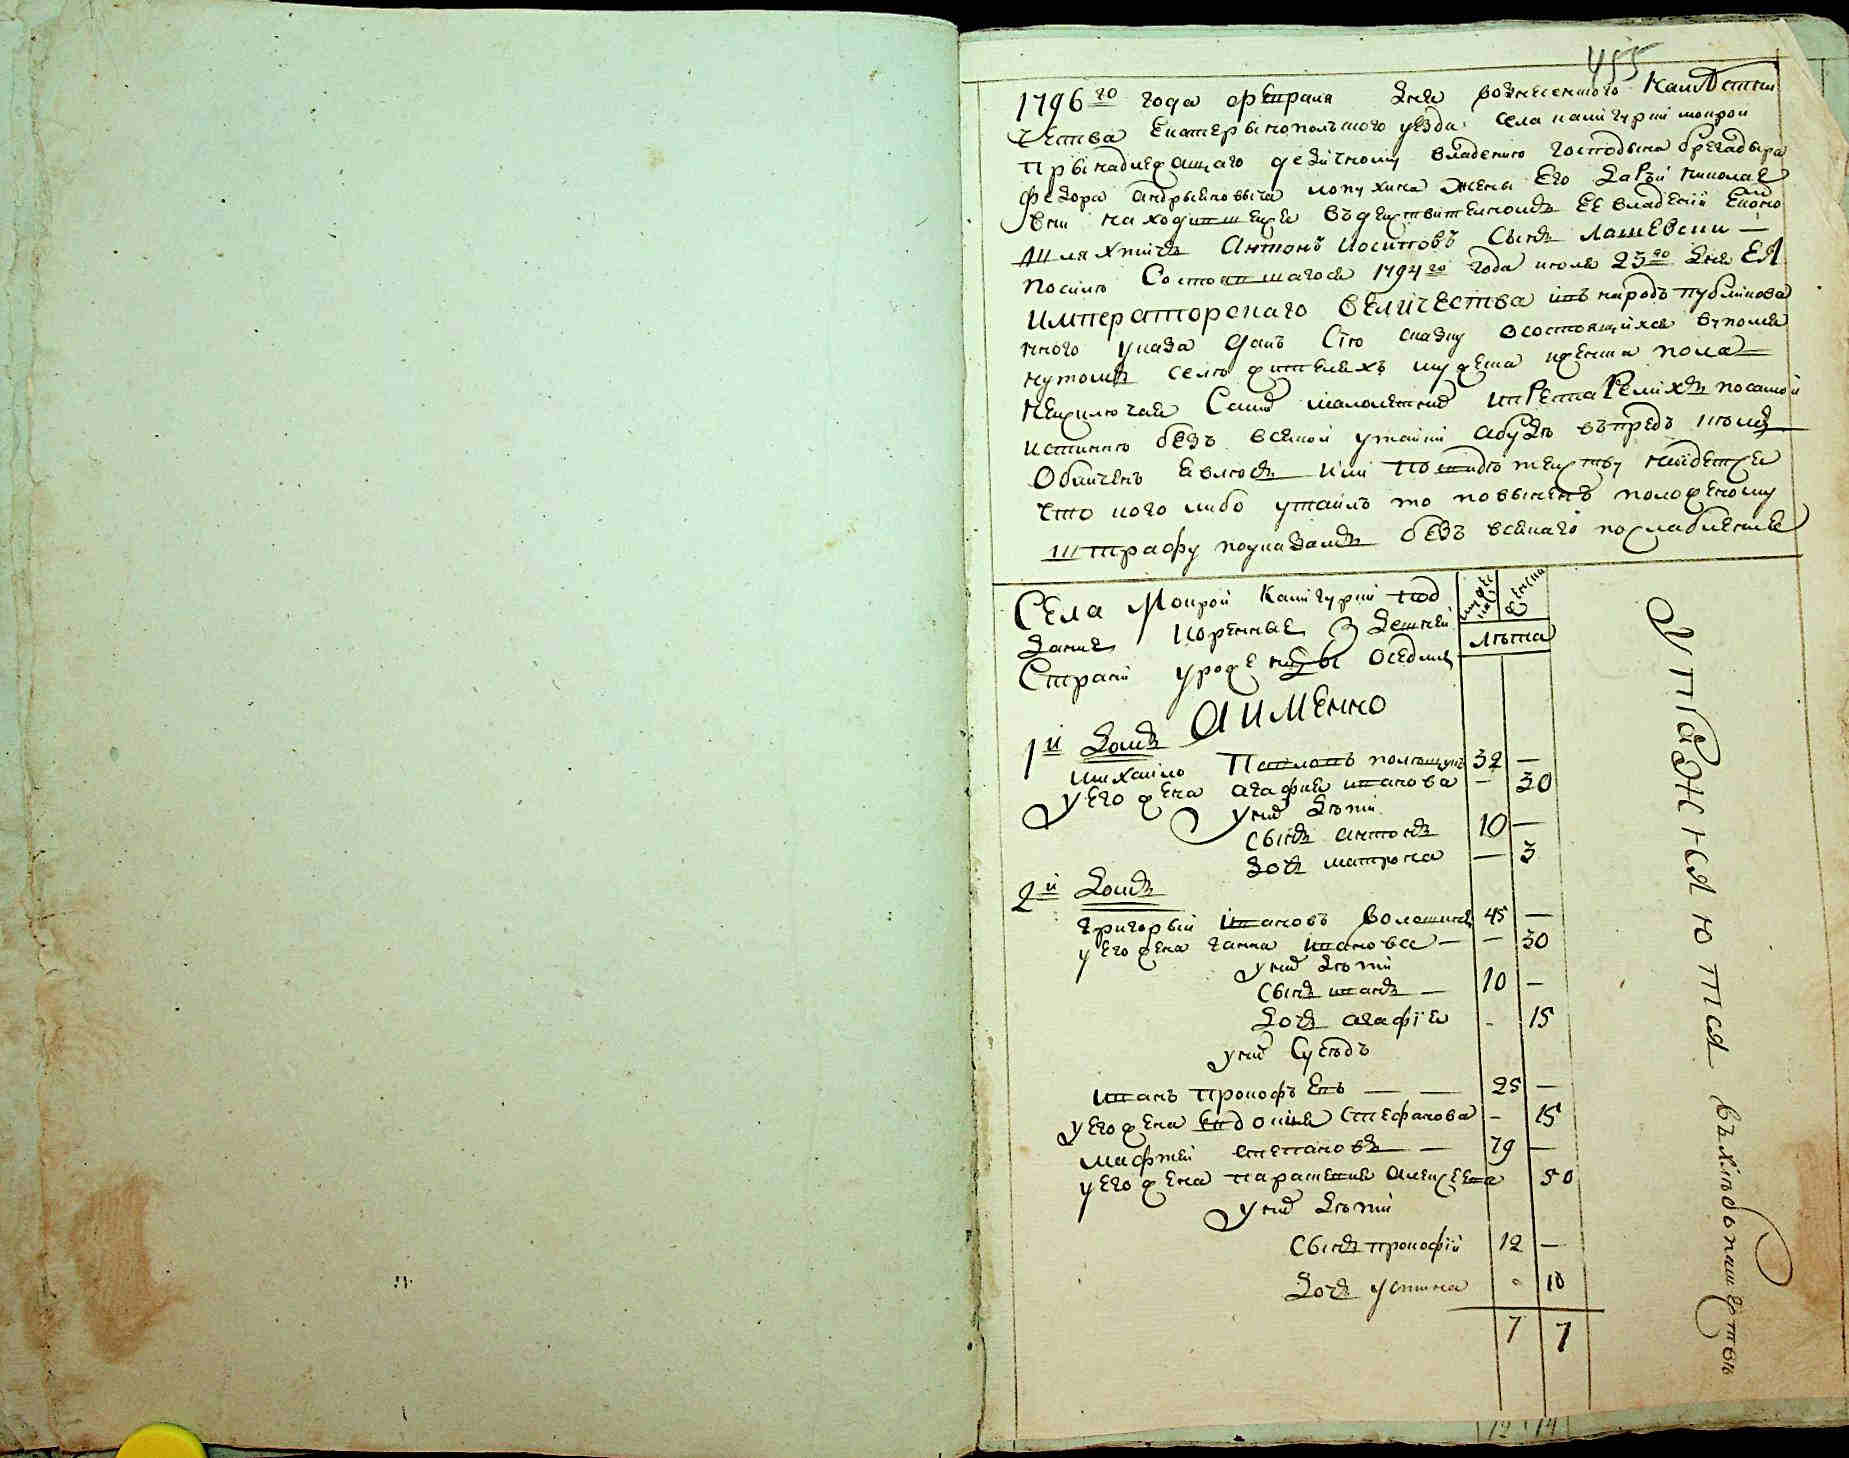 455
1796го года февраля дня вознесенского намѣстни
чества екатеринопольского уезда села кашгуріи мокрои
принадлежащаго дедичному владению господина брегадыра
федора андрыяновича лопухина жены его дарьи николае
вни находившеися въ действительномъ ее владеніи економ
шляхтичъ антонъ иосиповъ сынъ лашевски —
посилѣ состоявшагося 1794го года июля 23го дня ея
императорскаго величества въ народъ публикова
нного указа далъ сію сказку о состоящихся въ упомя
нутомъ селѣ жителяхъ мужеска и женска пола —
неисключая самыхъ малолетныхъ и престарелихъ по самой
истиннѣ безъ всякой утайки а буде впредь кѣмъ
обличенъ явлюсь или по свидѣтельству найдется
что кого либо утаилъ то повыненъ положеному
штрафу по указамъ безъ всякаго послабления
Села Мокрой Кашгуріи под
дание коренные здешней
страни уроженцы оседлие
мужеска женска
лѣта
А ИМЕННО
1й домъ
михайло Павловъ полющукъ 32 —
у его жена агафия иванова — 30
у них дѣти
сынъ антонъ 10 —
дочь матрона — 3
2й домъ
григорый ивановъ волошинъ 45 —
у его жена ганна иванова — — 30
у них дѣти
сынъ иванъ — 10 —
дочь агафія - 15
у них сусѣдъ
иванъ прокофьевъ — — 25 —
у его жена евдокия стефанова - 15
мафтей степановъ — 79 —
у его жена парасковия алексеева 50
у них дѣти
сынъ прокофій 12 —
дочь устина - 10
7 7
упражняются въ хлѣбопашертвѣ
12 14